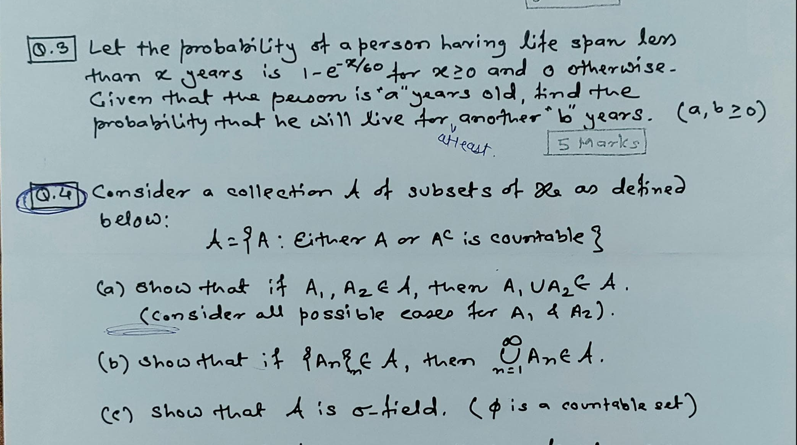 Q.3 Let the probability of a person having life span less
than x years is 1-e^{-x/60} for x≥0 and 0 otherwise.
Given that the person is "a" years old, find the
probability that he will live for atleast another "b" years. (a, b ≥ 0)
5 Marks
Q.4 Consider a collection A of subsets of 𝒳 as defined
below:
A = {A : Either A or A^c is countable}
(a) Show that if A₁, A₂ ∈ A, then A₁ ∪ A₂ ∈ A.
(Consider all possible cases for A₁ & A₂).
(b) Show that if {An}_n ∈ A, then ∪_{n=1}^{∞} An ∈ A.
(c) Show that A is σ-field. (ϕ is a countable set)